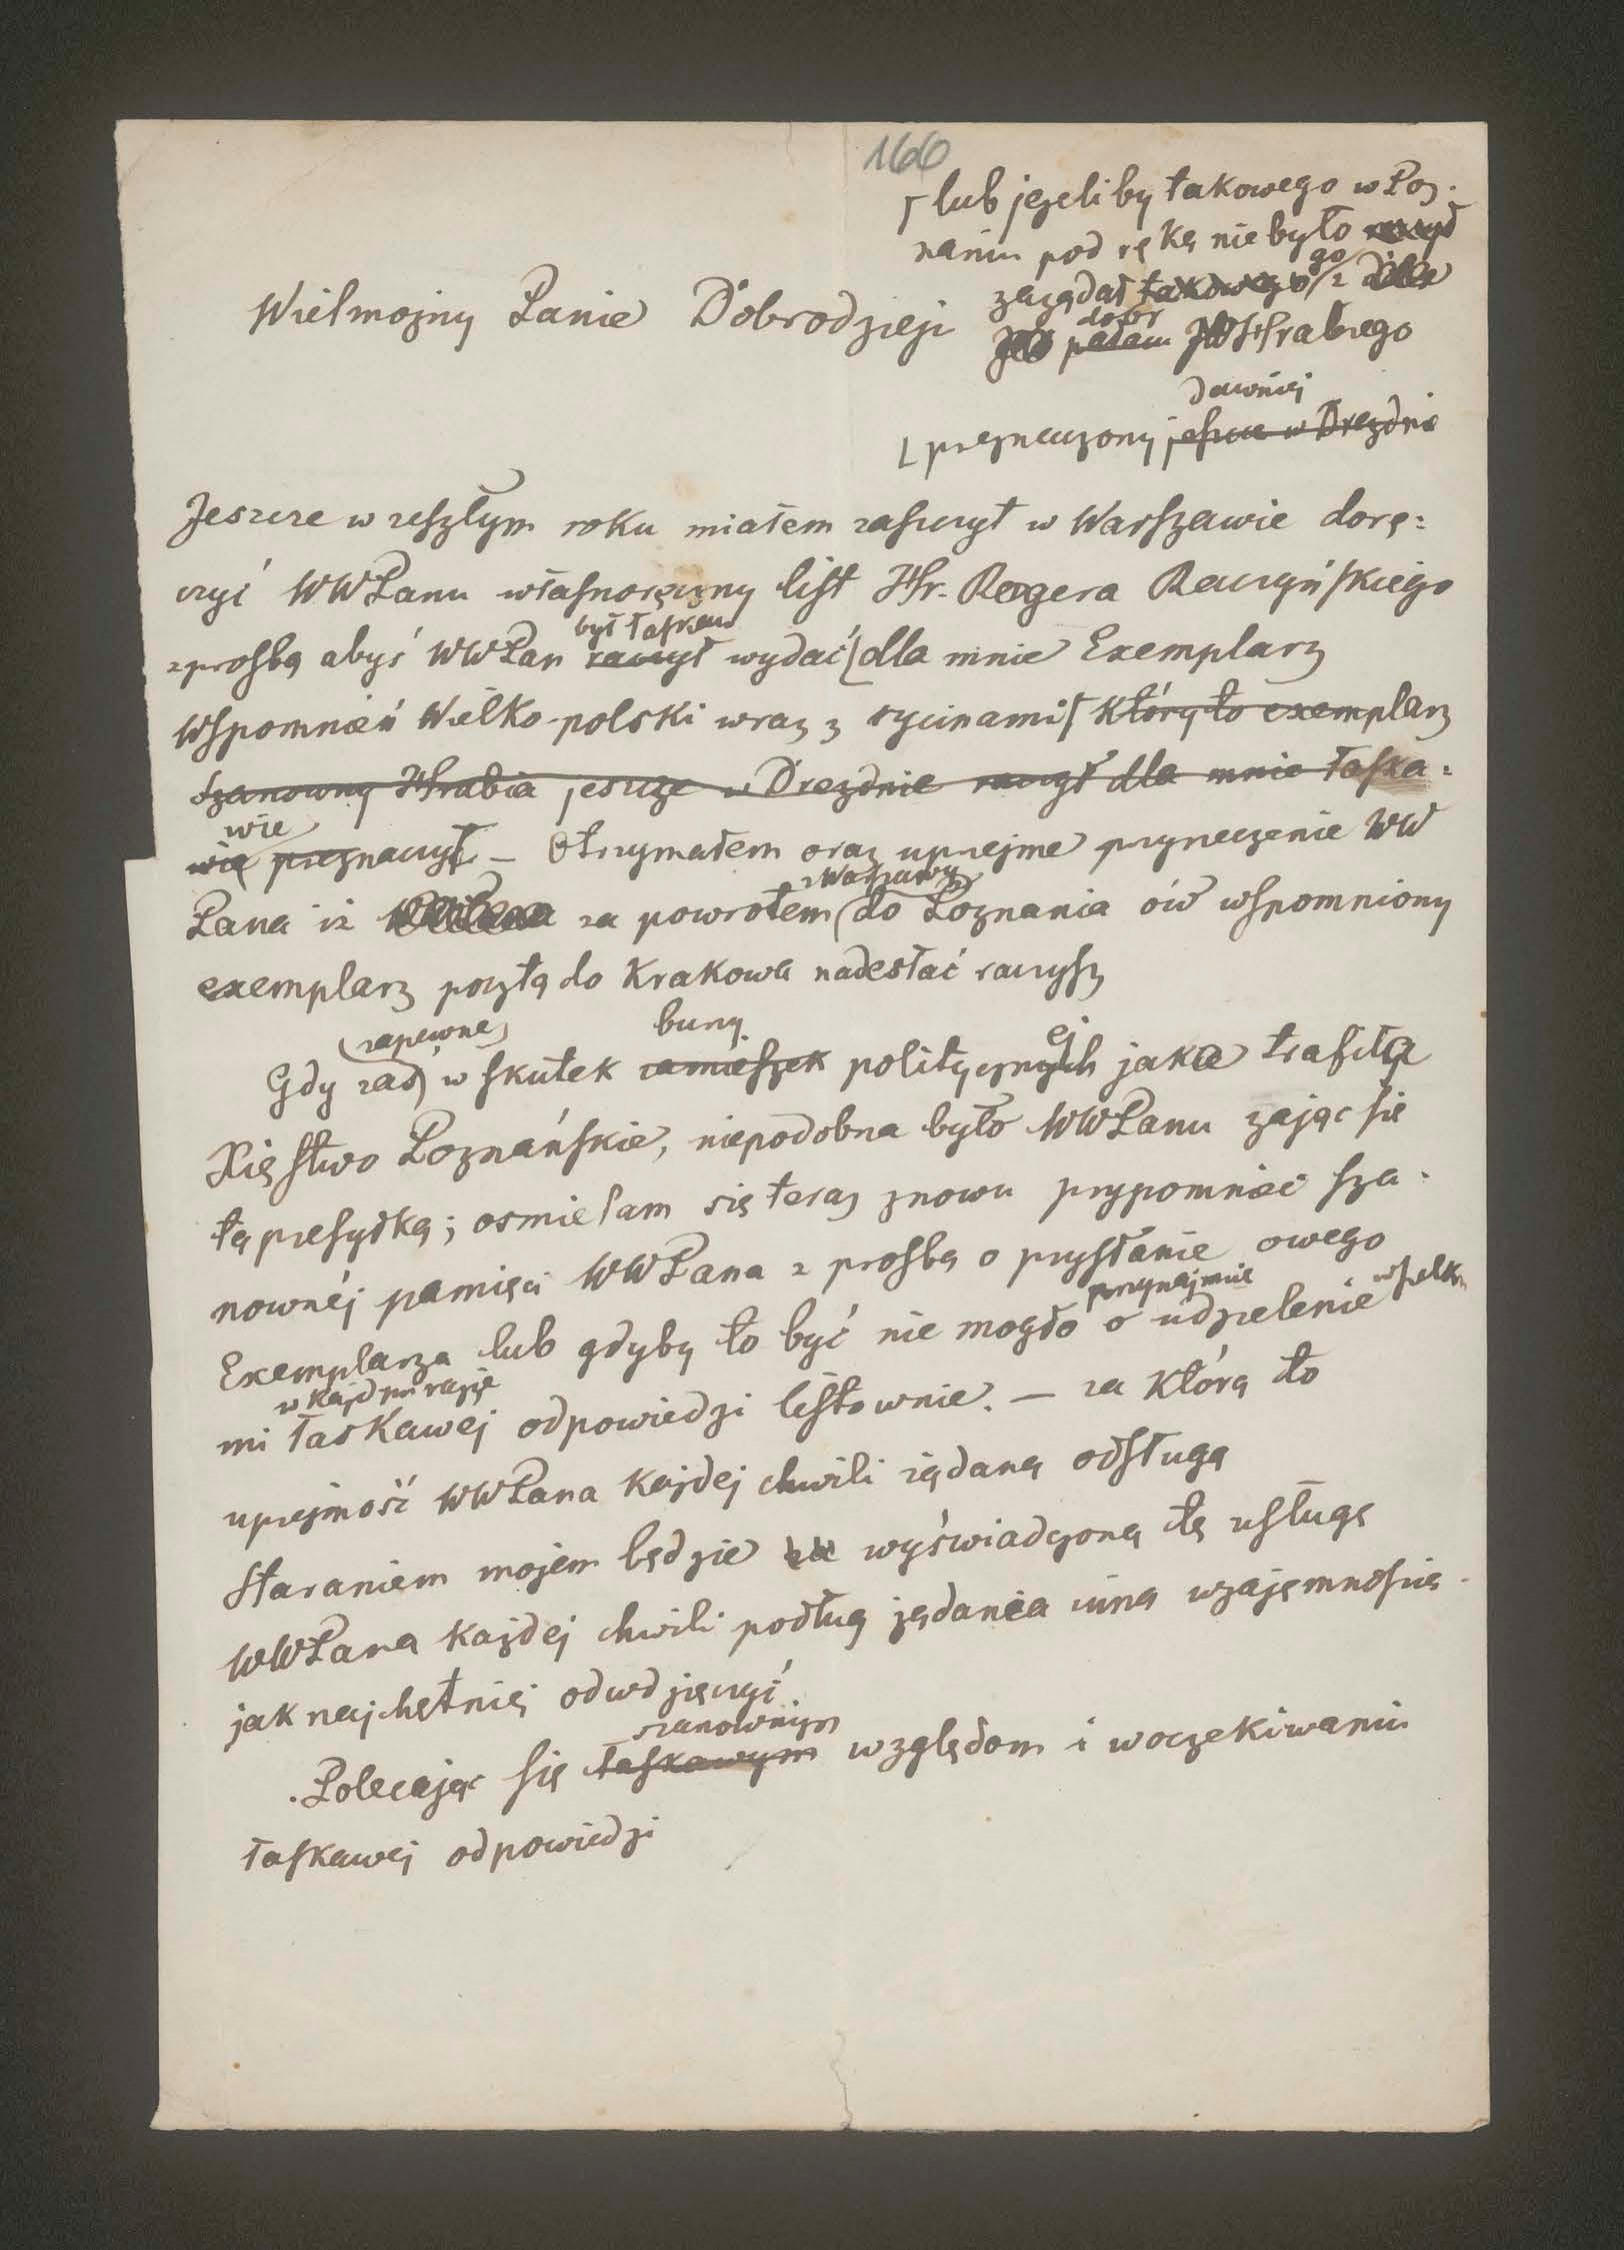 160
⌈ lub jeżeliby takowego w Poz-
naniu pod ręką nie było raczył
zażądał takowego go z dóbr
pałacu JW Hrabiego
Wielmożny Panie Dobrodzieju
dawniéj
⌊ przeznaczony jeszcze w Dreznie
Jeszcze w zeszłym roku miałem zaszczyt w Warszawie dorę=
czyć WWPanu własnoręczny list Hr. Rogera Raczyńskiego
był łaskaw
z prośbą abyś WWPan raczył wydać ⌈ dla mnie Exemplarz
Wspomnień Wielko-polski wraz z rycinami ⌈ który to exemplarz
Szanowny Hrabia jeszcze w Dreznie raczył dla mnie łaska=
wie
wie przeznaczył. – Otrzymałem oraz uprzejme przyrzeczenie WW
z Warszawy
Pana iż za powrotem do Poznania ów wspomniony
exemplarz pocztą do Krakowa nadesłać raczysz
zapewne burzy
Gdy zaś w skutek zamieszek politycznych ej jaka trafiła
Xięstwo Poznańskie, niepodobna było WWPanu zająć się
tą przesyłką; ośmielam się teraz znowu przypomnieć sza-
nownéj pamięci WWPana z prośbą o przysłanie owego
przynajmnie wszelk
Exemplarza lub gdyby to być nie mogło o udzielenie
w każdym razie
mi łaskawej odpowiedzi listownie. – za którą to
uprzejmość WWPana każdej chwili żądaną odsługą
Staraniem mojem będzie za wyświadczoną tę usługę
WWPana każdej chwili podług żądania inną wzajemnością
jak najchętniej odwdzięczyć.
szanownym
Polecając się łaskawym względom i w oczekiwaniu
łaskawej odpowiedzi